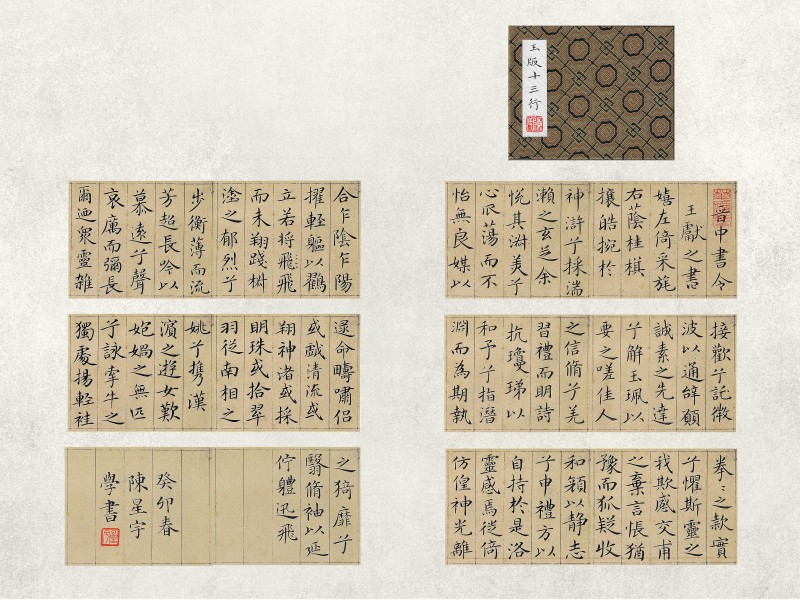 玉版十三行
晉中書令
王獻之書
嬉左倚采旄
右蔭桂棋
攘皓捥於
神滸兮採湍
瀨之玄芝余
悅其淑美兮
心㤆蕩而不
怡無良媒以
接歡兮託微
波以通辝願
誠素之先達
兮解玉珮以
要之嗟佳人
之信脩兮羌
習禮而明詩
抗瓊珶以
和予兮指潛
淵而為期執
拳〻之款實
兮懼斯靈之
我欺感交甫
之棄言悵猶
豫而狐疑收
和顏以静志
兮申禮方以
自持於是洛
靈感焉徙倚
仿偟神光離
合乍陰乍陽
擢輕軀以鸖
立若將飛飛
而未翔踐椒
塗之郁烈兮
步衡薄而流
芳超長吟以
慕遠兮聲
哀厲而彌長
爾迺衆靈雜
遝命疇嘯侶
或戲清流或
翔神渚或採
明珠或拾翠
羽從南相之
姚兮攜漢
濱之遊女歎
媧之無匹
兮詠牽牛之
獨處揚輕袿
之猗靡兮
翳脩袖以延
佇軆迅飛
癸卯春
陳星宇
學書